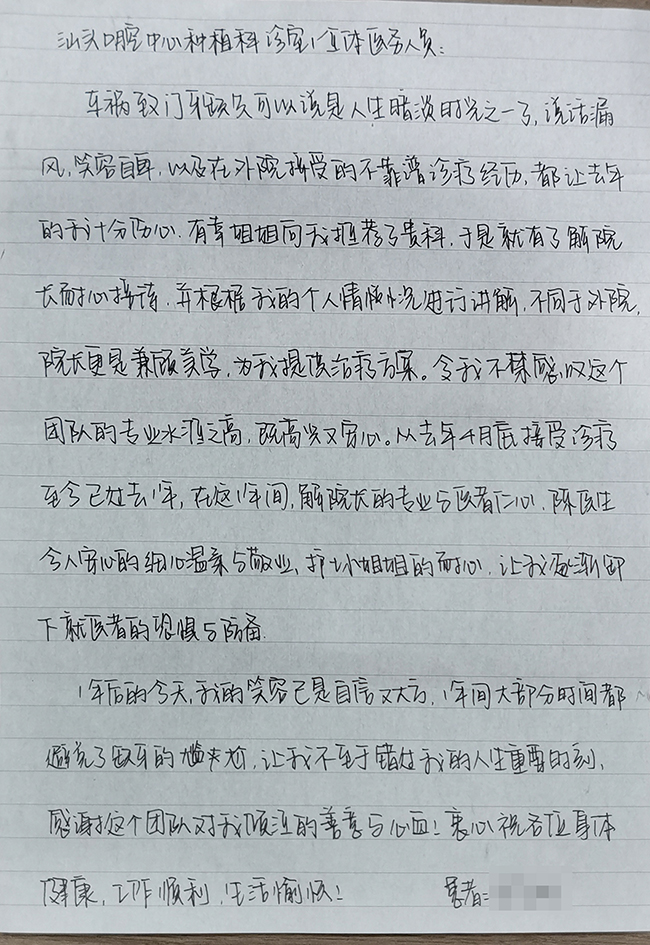 汕头口腔中心种植科诊室1全体医务人员:
车祸致门牙缺失可以说是人生暗淡时光之一了,说话漏
风,笑容自卑,以及在外院接受的不靠谱诊疗经历,都让去年
的我十分伤心.有幸姐姐向我推荐了贵科,于是就有了解院
长耐心接待,并根据我的个人情况进行讲解,不同于外院,
院长更是兼顾美学,为我提供治疗方案。令我不禁感叹这个
团队的专业水准之高,既高兴又安心。从去年4月底接受诊疗
至今已过去1年,在这1年间,解院长的专业与医者仁心.陈医生
令人安心的细心温柔与敬业、护士小姐姐的耐心.让我逐渐卸
下就医者的恐惧与防备.
1年后的今天,我的笑容已是自信又大方,1年间大部分时间都
避免了缺牙的尴尬,让我不至于错过我的人生重要时刻、
感谢这个团队对我倾注的善意与心血!衷心祝各位身体
健康,工作顺利,生活愉快!
患者: